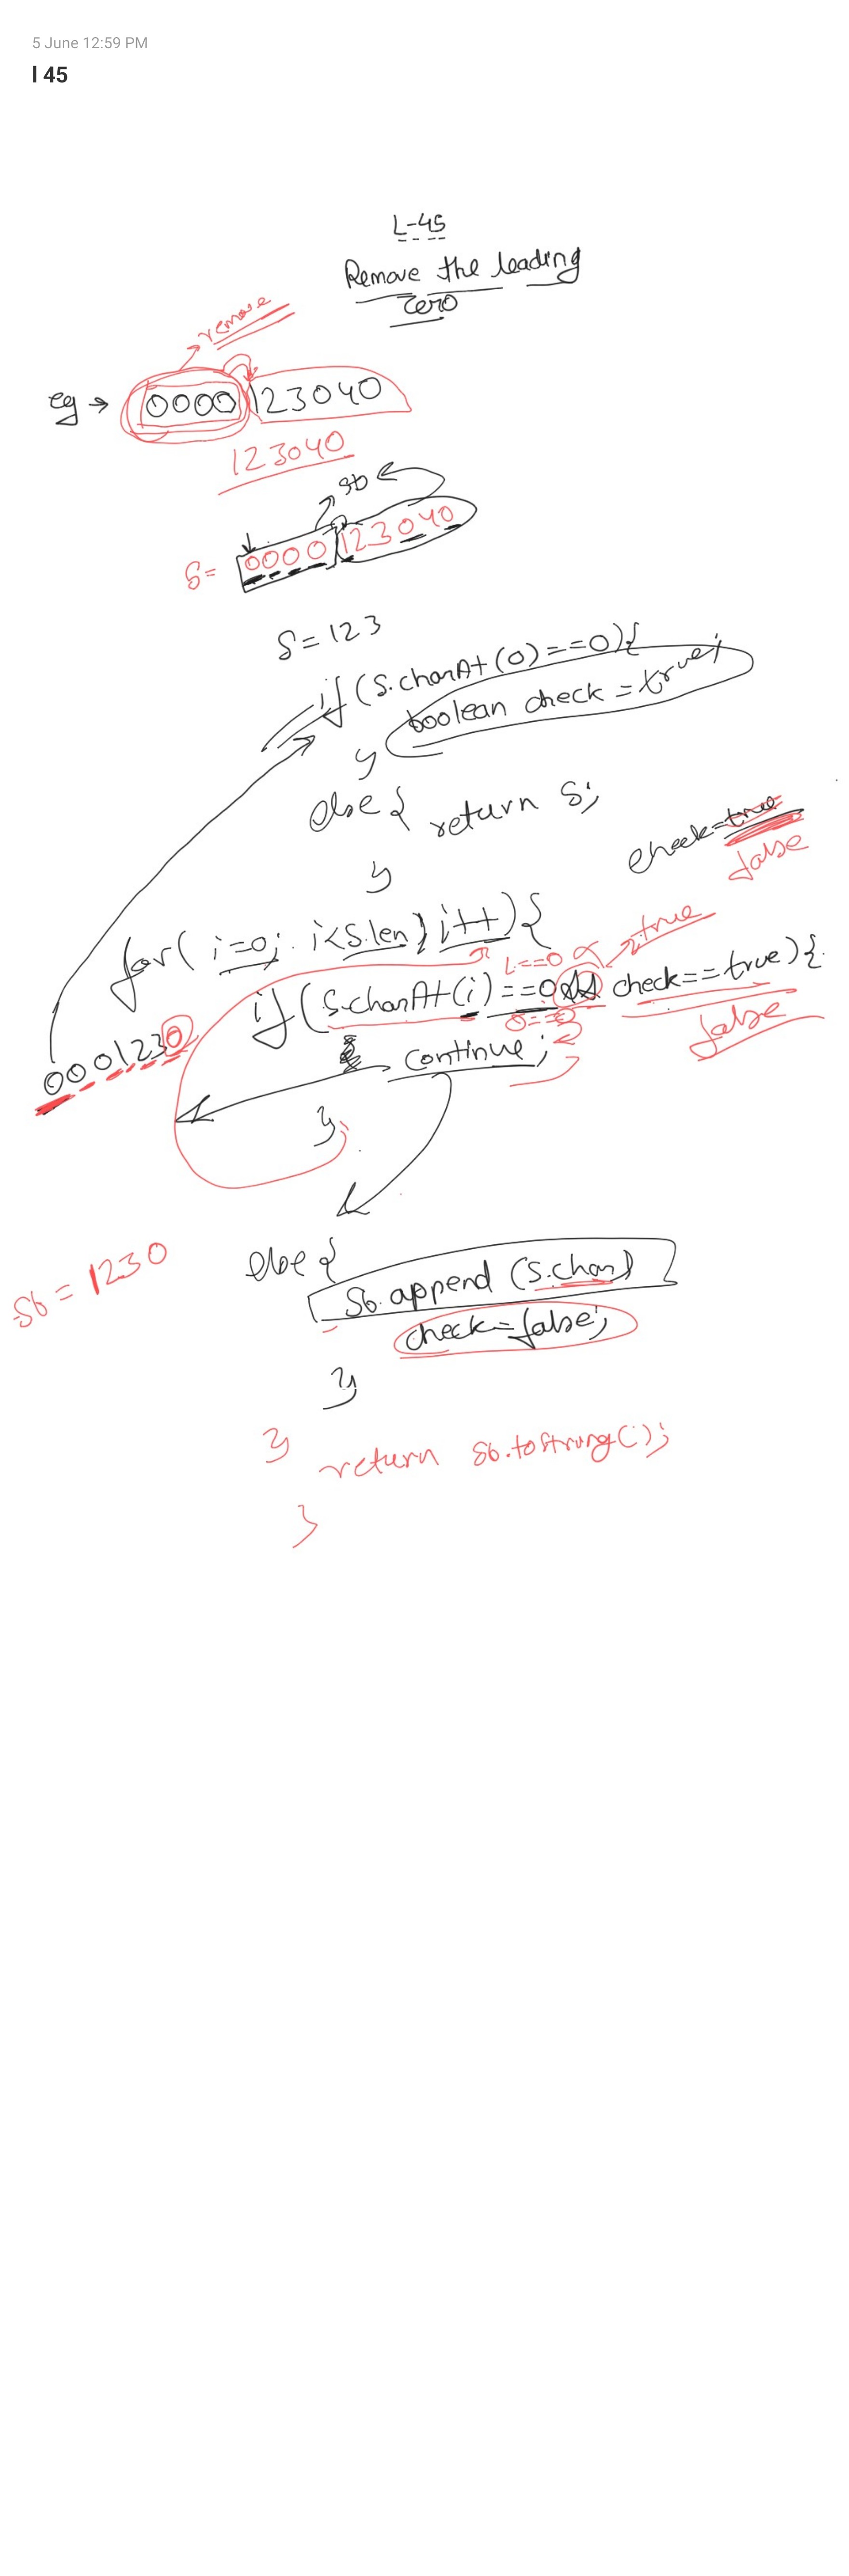 5 June 12:59 PM
l 45
L-45
Remove the leading
Zero
remove
eg → 0000123040
123040
sb
S= 0000123040
S=123
if (S.charAt(0)==0){
boolean check = true;
}
else { return S;
}
check=true
false
for( i=0; i<S.len; i++){
1==0 true
if (S.charAt(i)==0 && check==true){
0==0
false
0001230
continue;
};
else {
sb = 1230
sb.append (S.char)
check=false;
}
}
return sb.toString();
}